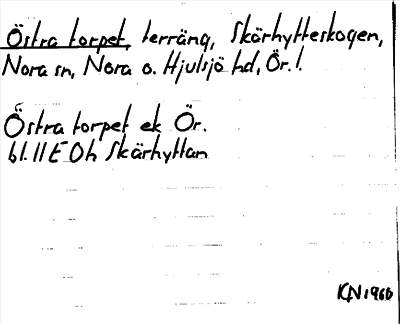 Östra torpet, terräng, Skärhytteskogen,
Nora sn, Nora o. Hjulsjö hd, Ör. l.
Östra torpet ek Ör.
bl. 11 E 0h Skärhyttan
KN 1966